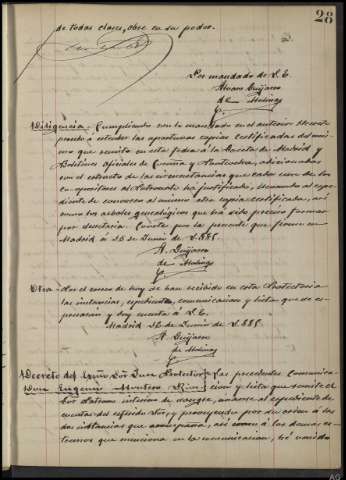 28
de todas clases, obre en su poder.
Por mandado de S.E.
Alvaro Quijano
de Molinas
Diligencia - Cumpliendo con lo mandado en el anterior
procedo á estender las oportunas copias certificadas del mismo
que remito en esta fecha á la Gaceta de Madrid y
Boletines oficiales de Coruña y Pontevedra, adicionadas
con el estracto de las circunstancias que cada uno de los
opositores al Patronato ha justificado, llevando al espe-
diente de su mismo otra copia certificada, así
como los arboles genealógicos que ha sido preciso formar
por Secretaria. Conste por la presente que firmo en
Madrid á 25 de Junio de 1.885.
A. Quijano
de Molinas
Otra - Por el correo de hoy se han recibido en esta Protectoria
las instancias, espedientes, comunicacion y lista que de es-
presarán y doy cuenta á S.E.
Madrid 26 de Junio de 1.885.
A. Quijano
de Molinas
Decreto del Ecmo Sor Juez Protector Las precedentes comunica-
Don Eugenio Montero Rios cion y lista que remite el
Sor Patrono interino de sangre, únanse al espediente de
cuentas del referido Señor y proveyendo por su orden á las
dos instancias que acompaña, así como á los demas es-
tremos que menciona en la comunicacion, he venido